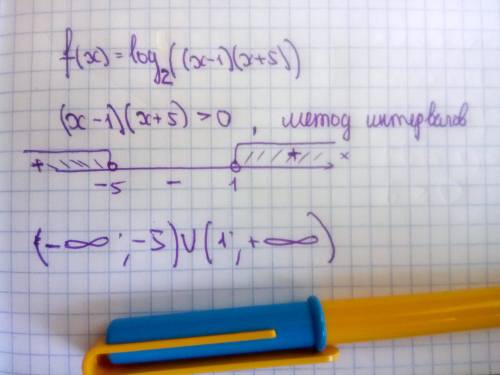 f(x) = log₂((x-1)(x+5))
(x-1)(x+5) > 0, метод интервалов
+ - + x
-5 1
(-∞; -5) ∪ (1; +∞)